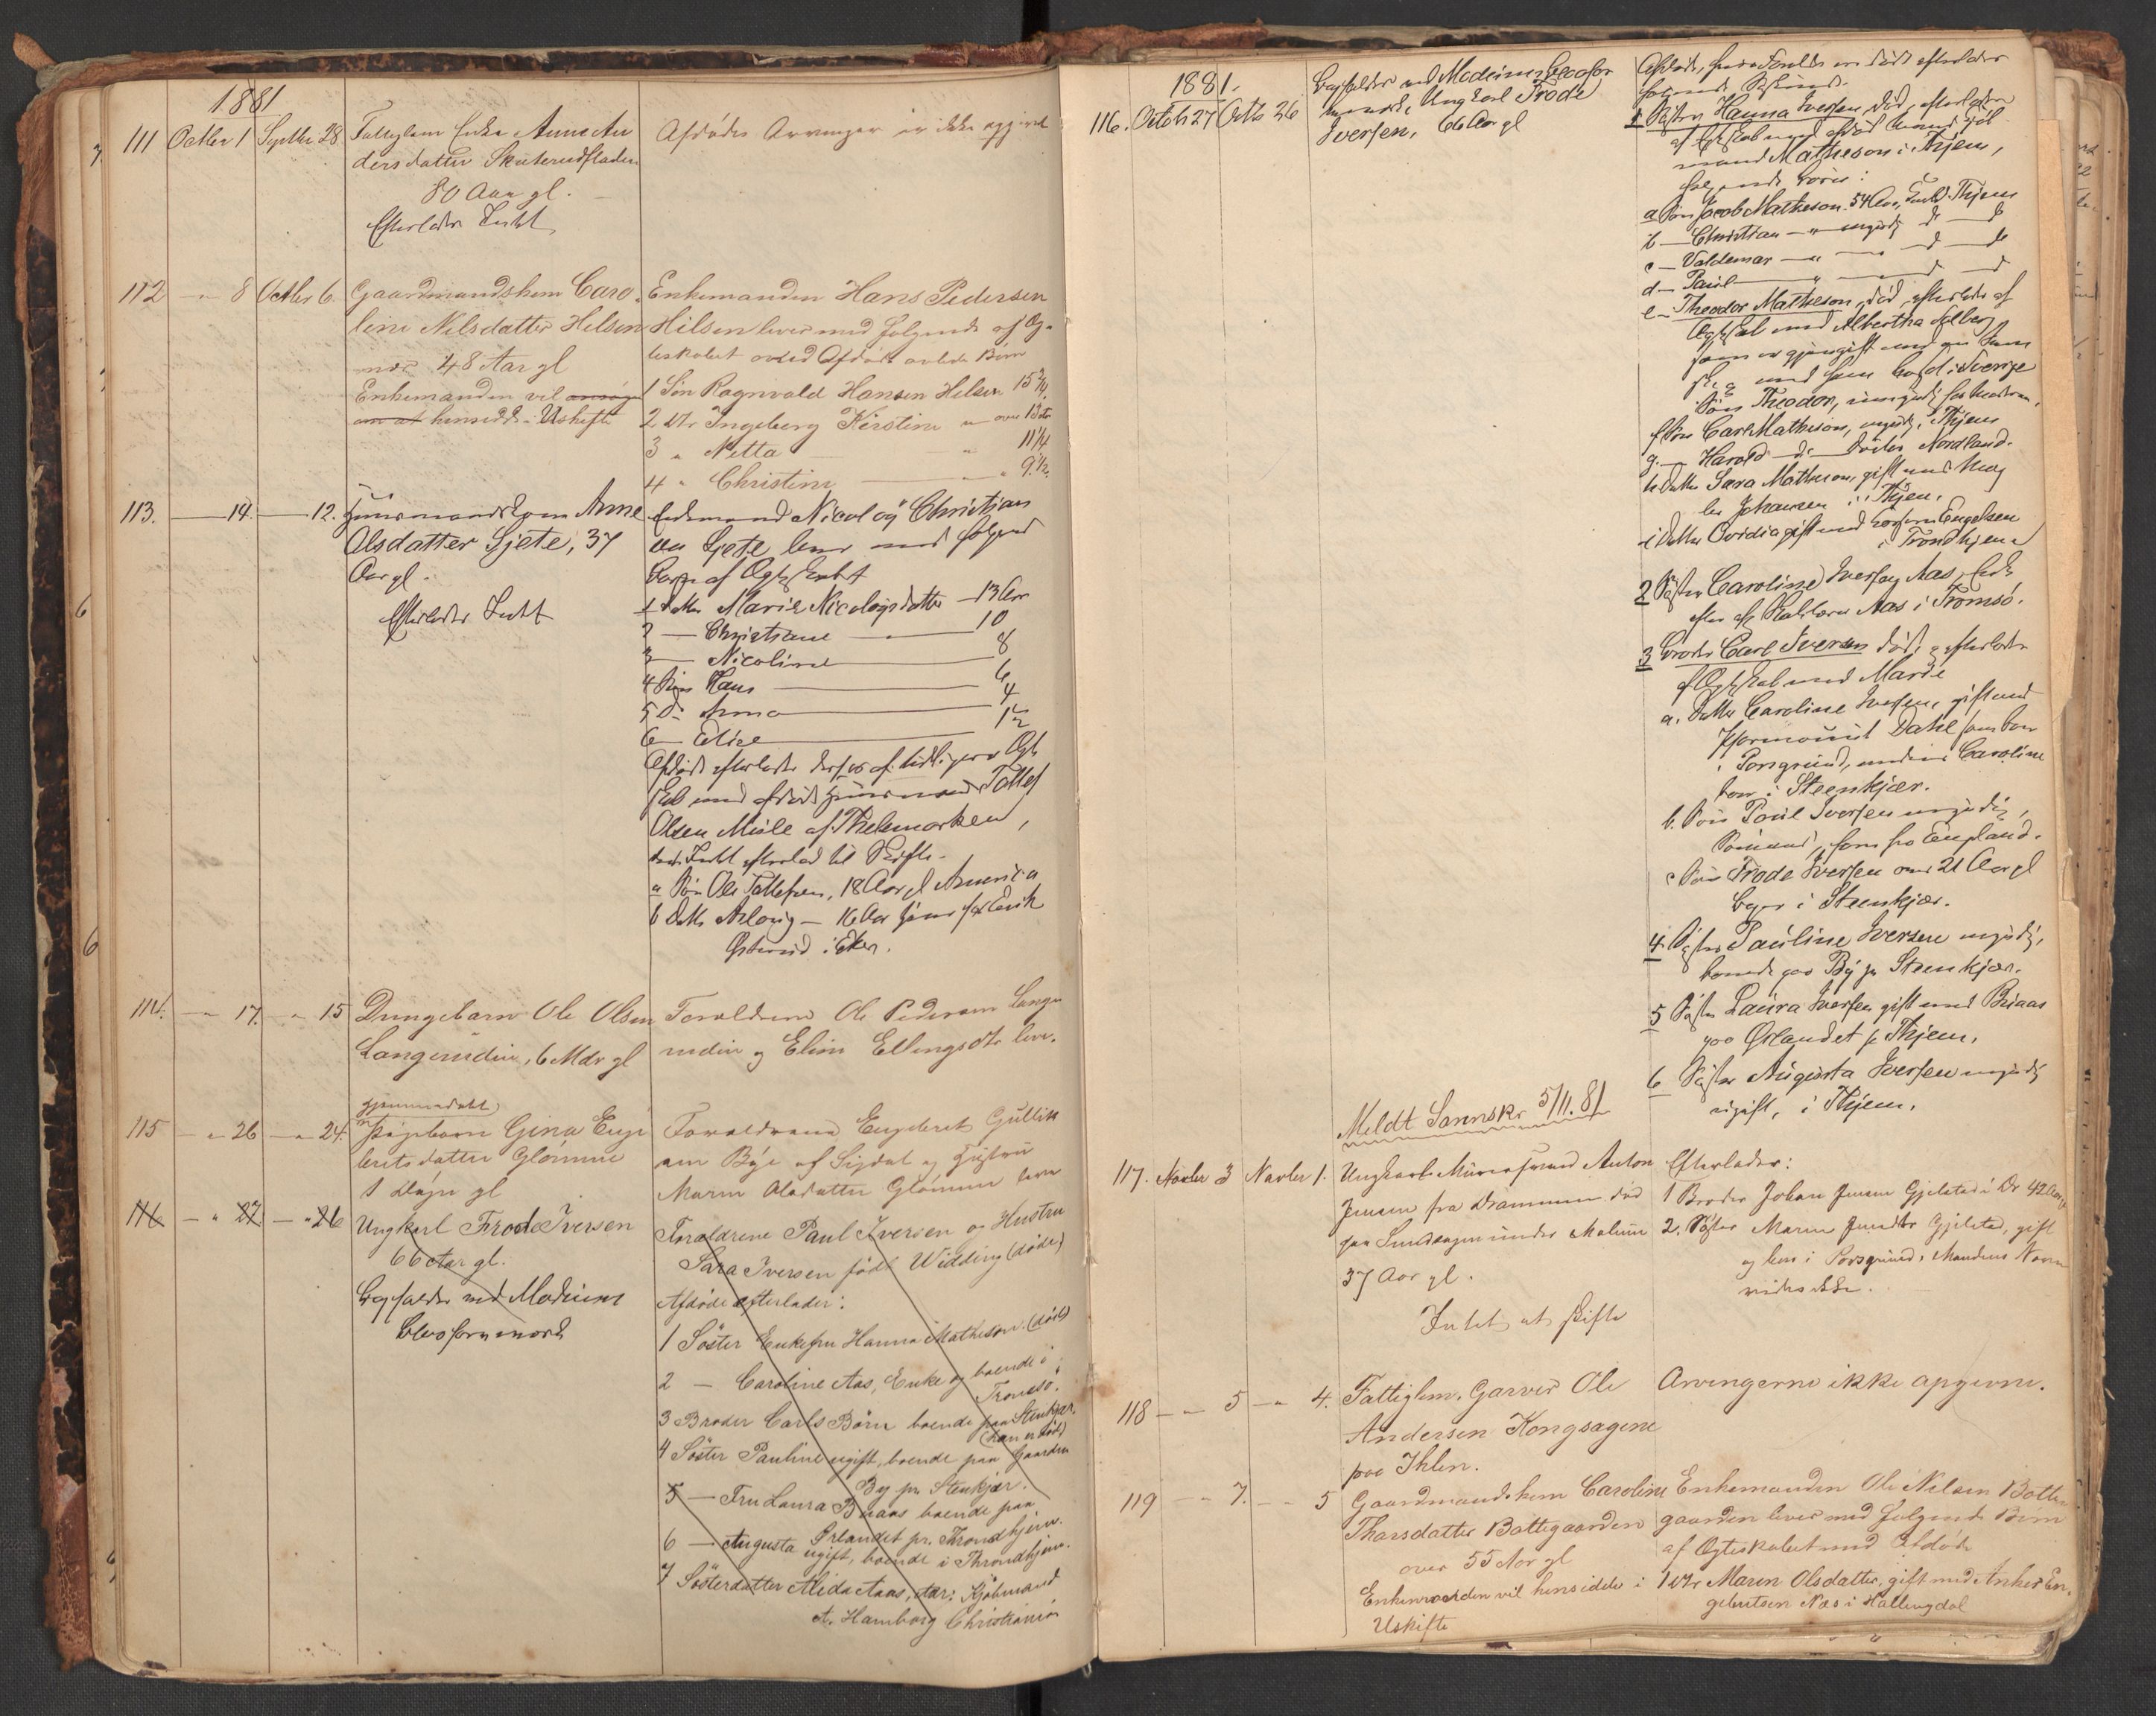 1881
111 Octber 1 Septbr 28 Fattiglem Enke Anne An
dersdatter Skuterudfladen
80 Aar gl.
Efterlader Intet
Afdødes Arvinger er ikke opgivet
112 - " 8 Octber 6. Gaardmandskone Caro
line Nilsdatter Hilsen
48 Aar gl
Enkemanden vil
om at hensidde i Uskifte
Enkemanden Hans Pedersen
Hilsen lever med følgende af Æg-
teskabet med Afdøde avlede Børn
1 Søn Ragnvald Hansen Hilsen 15 3/4
2 Dtr Ingeborg Kirstine " over 13
3 " Netta " 11 1/4
4 " Christine " 9 1/2
113. — 14. — 12. Huusmandskone Anne
Olsdatter Gjete, 37
Aar gl.
Efterlader Intet
Enkemand Nicolay Christian
Gjete lever med følgende
Børn af Ægteskabet
1 Datter Marie Nicolaysdatter — 13 Aar
2 — Christiane — 10
3 — Nicoline — 8
4 Søn Hans — 6
5 Dr Anna — 4
6 — Elise — 1 1/2
Afdøde efterlader derhos af tidligere Ægte
skab med afdøde Huusmand Tollef
Olsen Miile af Thelemarken,
Intet efterlod til Skifte.
a Søn Ole Tollefsen, 18 Aar gl America
b Datter Aslaug — 16 Aar hjemme
i Eker.
114. - " 17. - " 15 Drengebarn Ole Olsen
Langerudeie, 6 Mdr gl
Forældrene Ole Pedersen Lange
rudeie og Eline Ellingsdtr lever.
115 - " 26 - " 24. hjemmedøbt
Pigebarn Gina Enge
bretsdatter Glomme
1 Døgn gl
Forældrene Engebret Gullik
sen Bye af Sigdal og Hustru
Maren Olsdatter Glomme lever
116 - " 27 - " 26 Ungkarl Frode Iversen
66 Aar gl.
Bogholder ved Modums
Blaafarveværk
Forældrene Paul Iversen og Hustru
Sara Iversen født Widding (døde)
Afdøde efterlader:
1 Söster Enkefru Hanna Matheson. (död)
2 — Caroline Aas, Enke og boende i
Tromsö.
3 Broder Carls Börn boende paa Stenkjær.
(han er död)
4 Söster Pauline ugift, boende paa Gaarden
By pr. Stenkjær.
5 — Fru Laura Braas boende paa
Ørlandet pr. Throndhjem.
6 — Augusta ugift, boende i Throndhjem.
7 Sösterdatter Alida Aas, adr: Kjöbmand
A. Hamborg Christiania
1881.
116. Octob 27 Octb 26 Bogholder ved Modums Blaafar
veværk, Ungkarl Frode
Iversen, 66 Aar gl
Afdøde, hvis Forældre ere døde efterlader
følgende Søskende.
1 Søster Hanna Iversen, død, efterlader
af Ægteskab med afdøde
mand Matheson i Thjem,
følgende Børn:
a Søn Jacob Matheson. 54 Aar, Thjem
b — Christian — " myndig d — d
c — Valdemar — " — d — d
d — Paul — " — d — d
e — Theodor Matheson, død, efterlader af
Ægteskab med Albertha Solberg
som er gjengift med en Svenske
og med ham bosd i Sverige
Søn Theodor, umyndig
f Søn Carl Matheson, myndig, Thjem
g — Harold — d — Nordland.
h Datter Sara Matheson, gift med
Johansen i Thjem.
i Datter Ovidia gift med Engelsen
i Trondhjem
2 Søster Caroline Iversen Aas, Enke
efter Aas i Tromsø.
3 Broder Carl Iversen død, efterlader
af Ægteskab med Marie
a. Datter Caroline Iversen, gift med
Dahl som bor
i Porsgrund, medens Caroline
bor i Steenkjær.
b. Søn Paul Iversen myndig,
Sømand, fare fra England.
c Søn Frode Iversen over 21 Aar gl
i Steenkjær.
4. Søster Pauline Iversen myndig,
boende paa By pr Steenkjær.
5 Søster Laura Iversen gift med Braas
paa Ørlandet pr Thjem.
6 Søster Augusta Iversen myndig
ugift, i Thjem.
Meldt Sorenskr. 5/11. 81
117. Novbr 3 Novbr 1. Ungkarl Murersvend Anton
Jensen fra Drammen død
paa under Modum
37 Aar gl.
Intet at skifte
Efterlader:
1 Broder Johan Jensen Gjelsted i Dr 42 Aar
2. Søster Maren Jensdtr Gjelsted, gift
og bor i Porsgrund, Mandens Navn
vides ikke.
118 — " 5 — " 4. Fattiglem. Garver Ole
Andersen Kongsagene
paa Ihlen.
Arvingerne ikke opgivne.
119 — " 7. — " 5 Gaardmandskone Caroline
Thorsdatter Bottegaarden
over 55 Aar gl
Enkemanden vil hensidde i
Uskifte
Enkemanden Ole Nilsen Botte
gaarden lever med følgende Børn
af Ægteskabet med Afdøde
1 Dtr Maren Olsdatter, gift med Anders En.
gebretsen Næs i Hallingdal